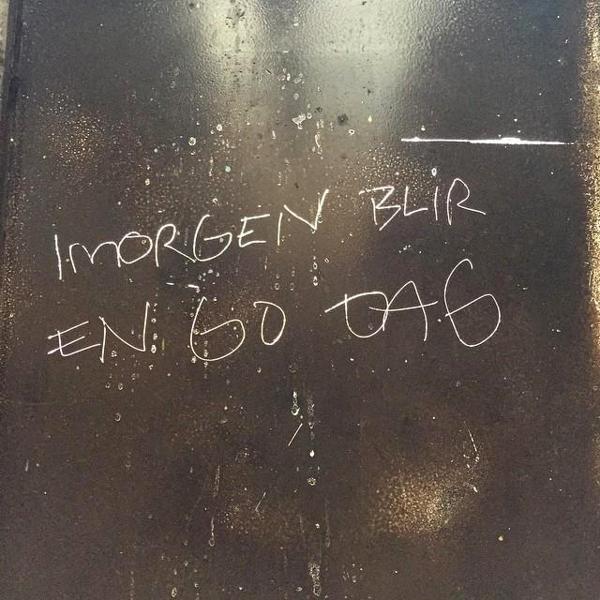 IMORGEN BLIR
EN GO DAG